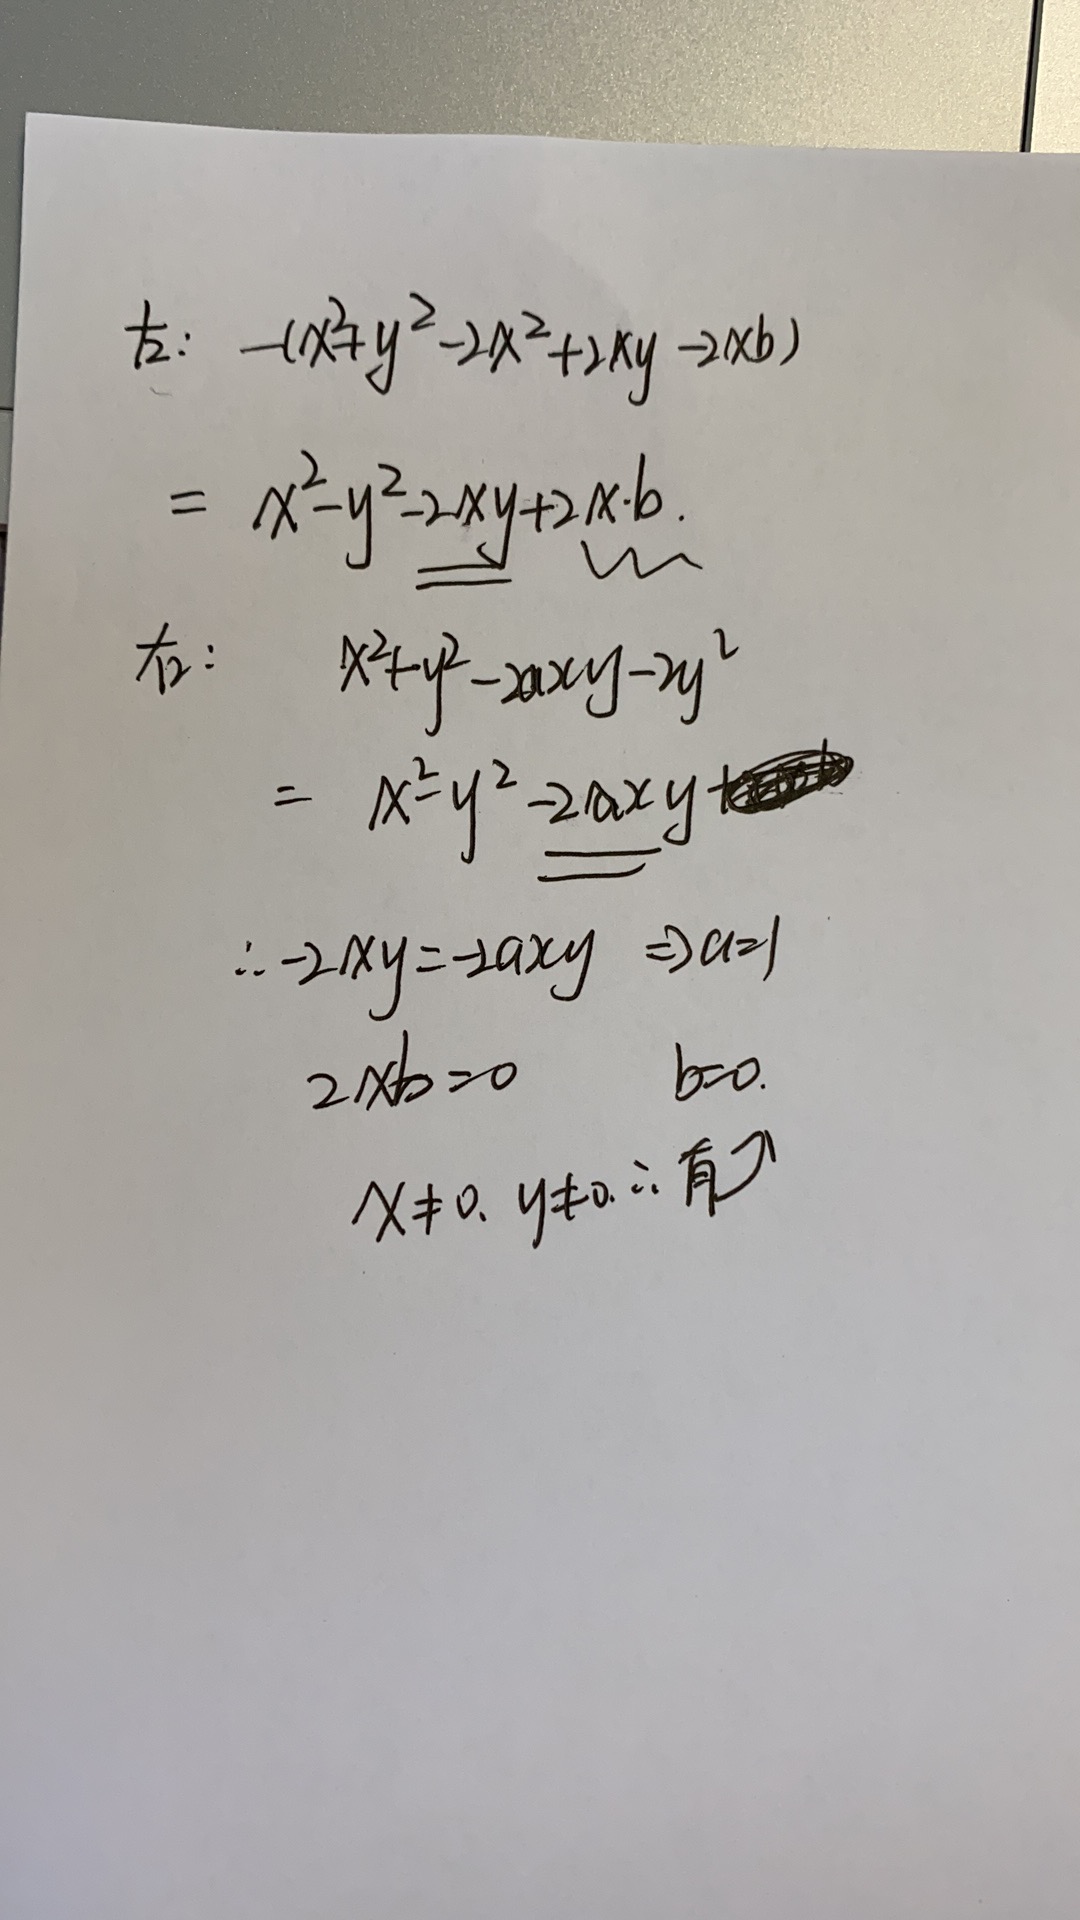 左: -(x²+y²-2x²+2xy-2xb)
= x²-y²-2xy+2x·b.
右: x²+y²-2axy-2y²
= x²-y²-2axy+
∴-2xy=-2axy ⇒a=1
2xb=0 b=0.
x≠0. y≠0. ∴有↗